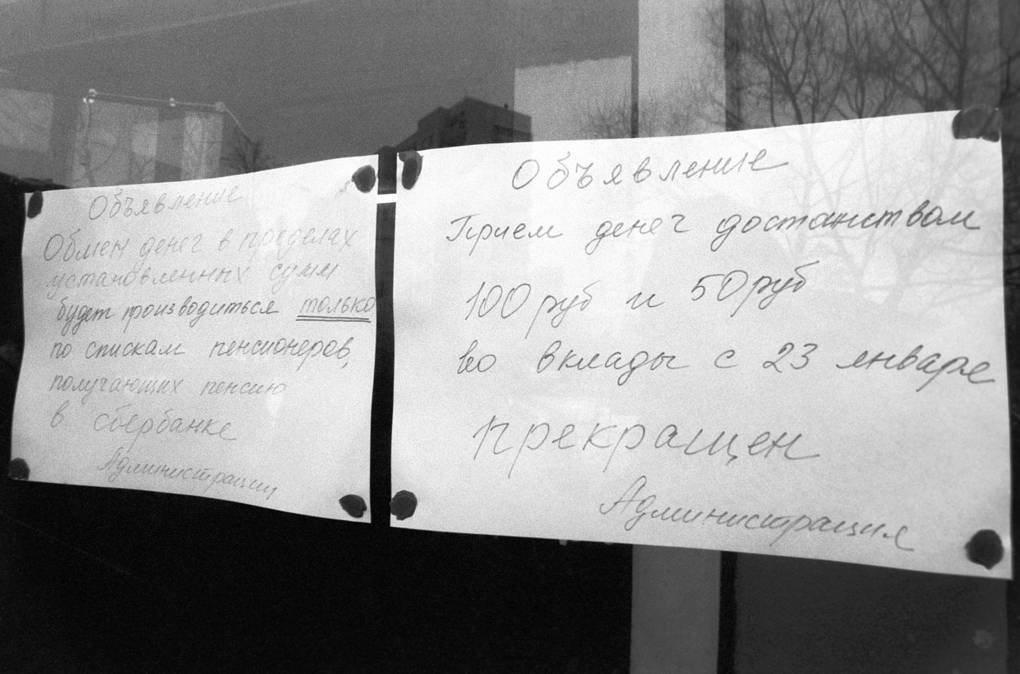 Объявление
Обмен денег в пределах
установленных сумм
будет производиться только
по спискам пенсионеров,
получающих пенсию
в сбербанке
Администрации
Объявление
Прием денег достаинством
100 руб и 50 руб
во вклады с 23 января
прекращен
Администрация